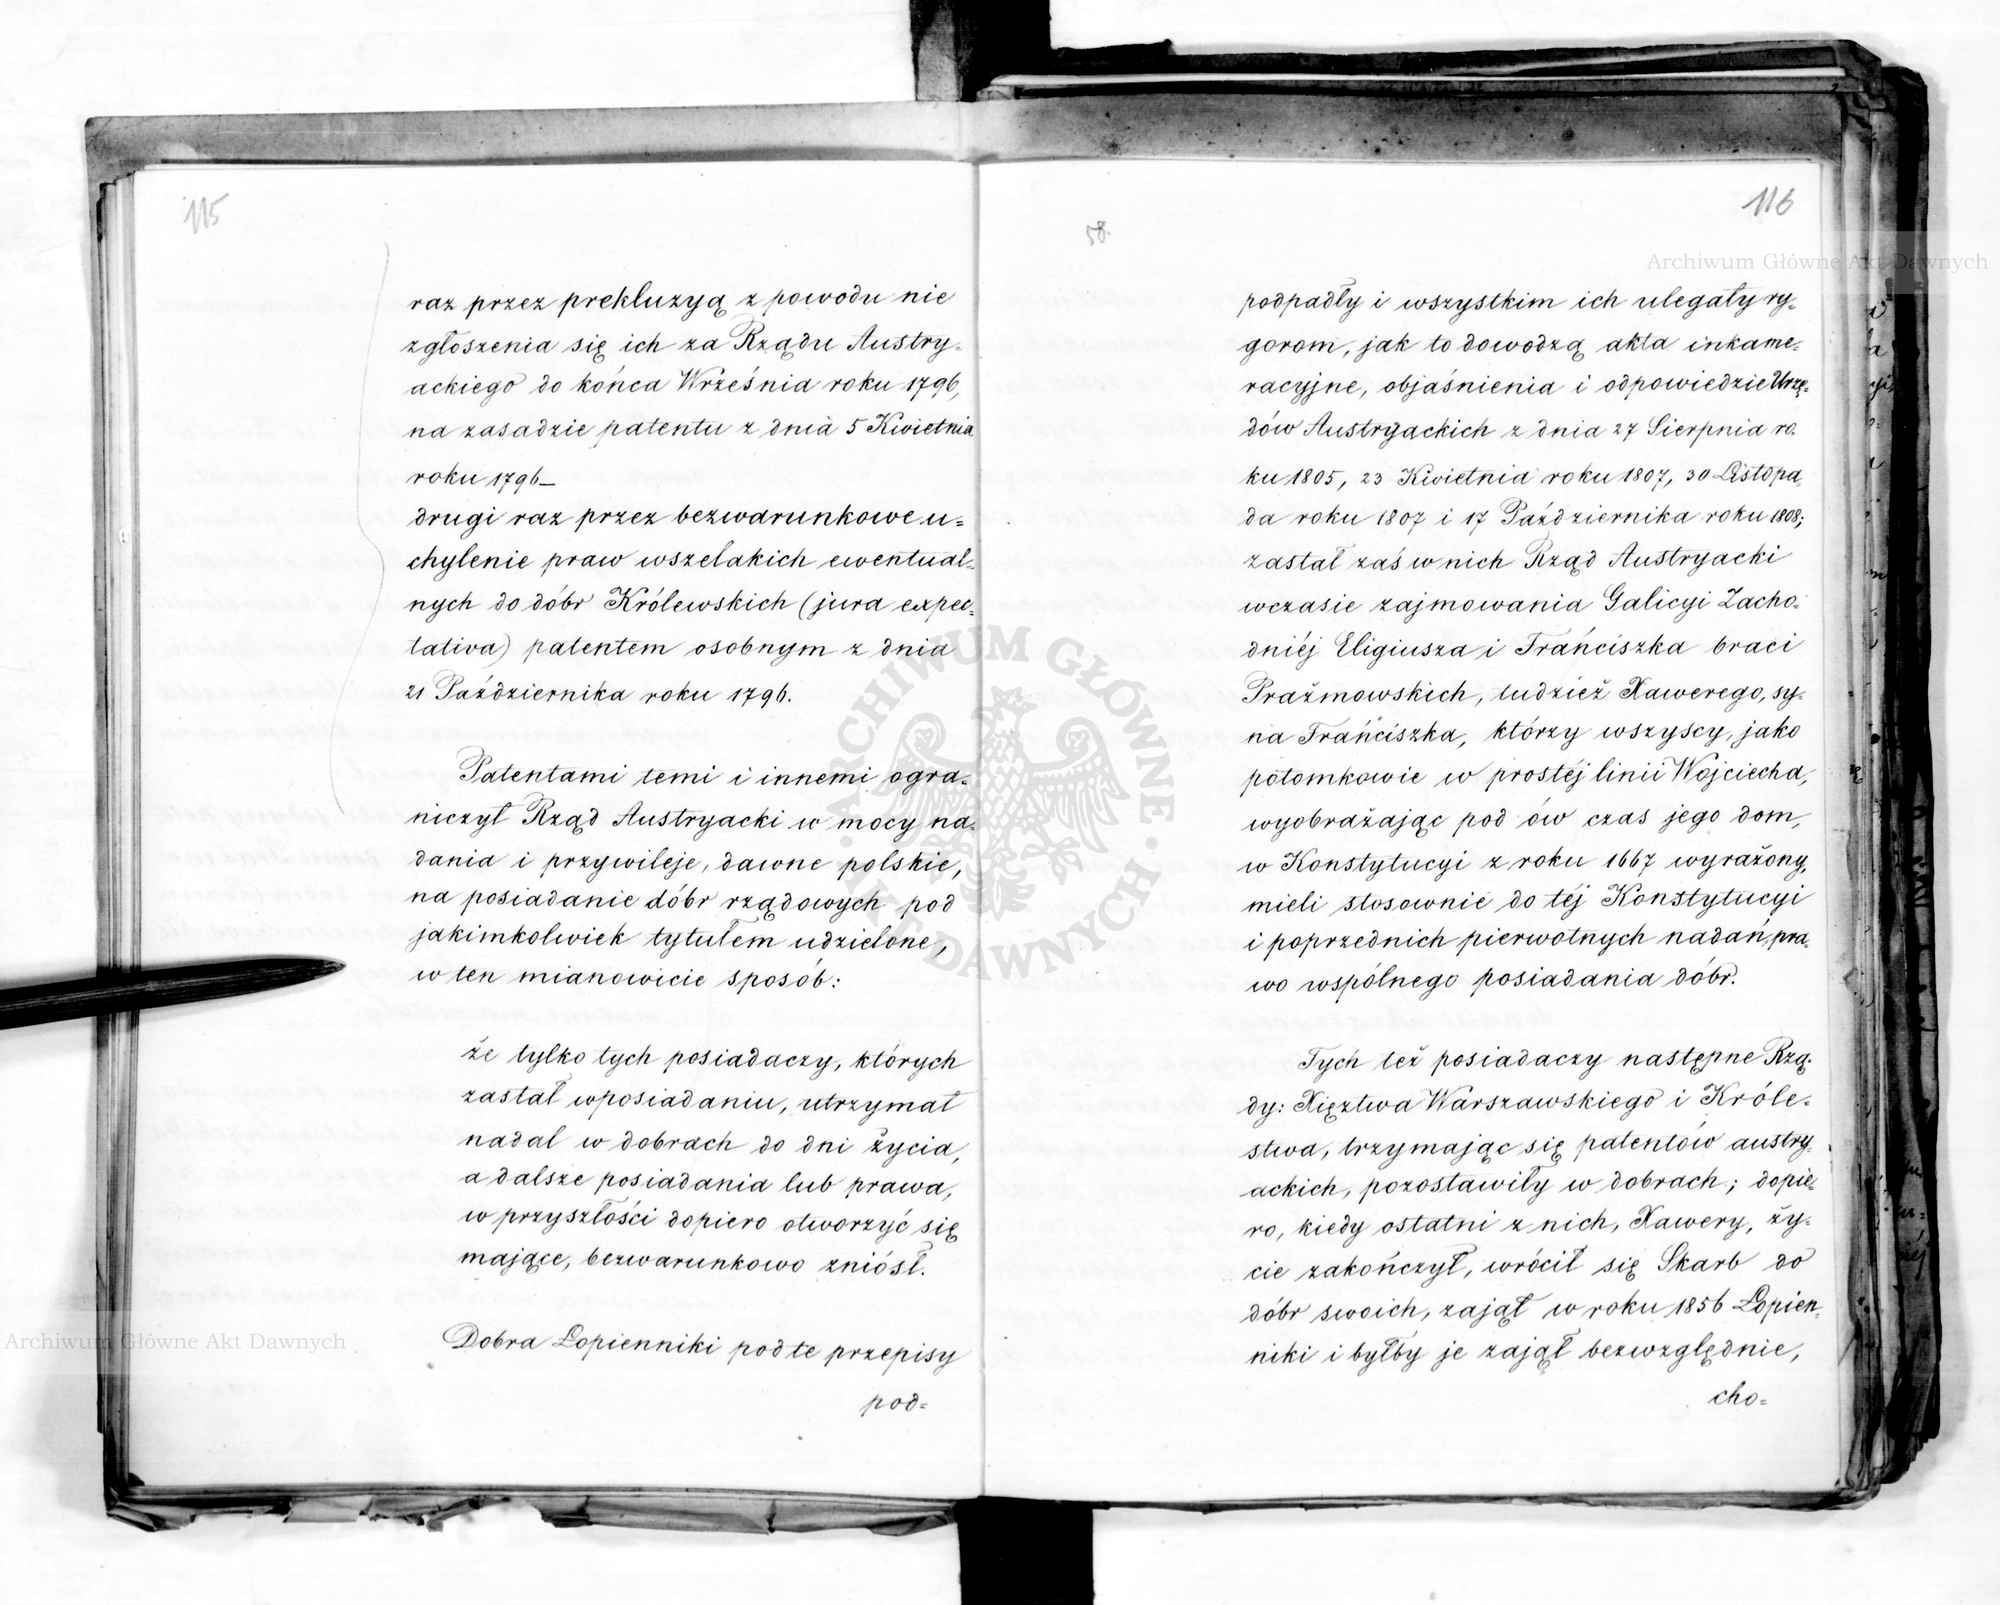 115
raz przez prekluzyą z powodu nie
zgłoszenia się ich za Rządu Austry-
ackiego do końca Września roku 1796,
na zasadzie patentu z dnia 5 Kwietnia
roku 1796_
drugi raz przez bezwarunkowe u=
chylenie praw wszelakich ewentual=
nych do dóbr Królewskich (jura expec=
tativa) patentem osobnym z dnia
21 Października roku 1796.
Patentami temi i innemi ogra=
niczył Rząd Austryacki w mocy na=
dania i przywileje, dawne polskie,
na posiadanie dóbr rządowych pod
jakimkolwiek tytułem udzielone,
w ten mianowicie sposób:
że tylko tych posiadaczy, których
zastał w posiadaniu, utrzymał
nadal w dobrach do dni życia,
a dalsze posiadania lub prawa,
w przyszłości dopiero otworzyć się
mające, bezwarunkowo zniósł.
Dobra Łopienniki pod te przepisy
pod=
116
58.
podpadły i wszystkim ich ulegały ry=
gorom, jak to dowodzą akta inkame=
racyjne, objaśnienia i odpowiedzie Urzę=
dów Austryackich z dnia 27 Sierpnia ro-
ku 1805, 23 Kwietnia roku 1807, 30 Listopa-
da roku 1807 i 17 Października roku 1808;
zastał zaś w nich Rząd Austryacki
w czasie zajmowania Galicyi Zacho-
dniéj Eligiusza i Frańciszka braci
Prażmowskich, tudzież Xawerego, sy-
na Frańciszka, którzy wszyscy, jako
potomkowie w prostéj linii Wojciecha,
wyobrażając pod ów czas jego dom,
w Konstytucyi z roku 1667 wyrażony,
mieli stosownie do téj Konstytucyi
i poprzednich pierwotnych nadań, pra-
wo wspólnego posiadania dóbr.
Tych też posiadaczy następne Rzą-
dy: Xięztwa Warszawskiego i Króle-
stwa, trzymając się patentów austry-
ackich, pozostawiły w dobrach; dopie-
ro, kiedy ostatni z nich, Xawery, ży-
cie zakończył, wrócił się Skarb do
dóbr swoich, zajął w roku 1856 Łopien-
niki i byłby je zajął bezwzględnie,
cho=
Archiwum Główne Akt Dawnych
Archiwum Główne Akt Dawnych
ARCHIWUM GŁÓWNE AKT DAWNYCH